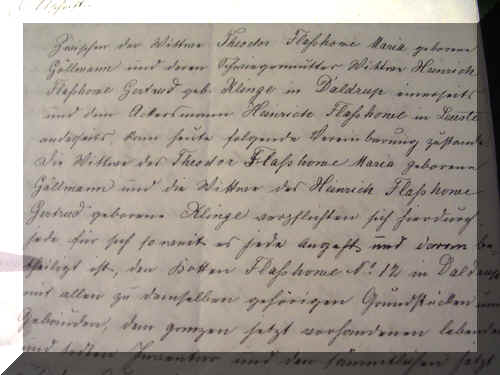 Abschrift.
Zwischen der Wittwe Theodor Flaßhowe Maria geborene
Göllmann und deren Schwiegermutter Wittwe Heinrich
Flaßhowe Gertrud geb. Klinge in Daldrup einerseits
und dem Ackersmann Heinrich Flaßhowe in
anderseits kam heute folgende Vereinbarung zustande
Die Wittwe des Theodor Flaßhowe Maria geborene
Göllmann und die Wittwe des Heinrich Flaßhowe
Gertrud geborene Klinge verpflichten sich hierdurch
jede für sich soweit es jede angeht und daran be-
theiligt ist, den Kotten Flaßhowe No. 12 in Daldrup
mit allen zu demselben gehörigen Grundstücken und
Gebäuden, dem ganzen jetzt vorhandenen lebenden
und todten Inventar und den sämmtlichen jetzt